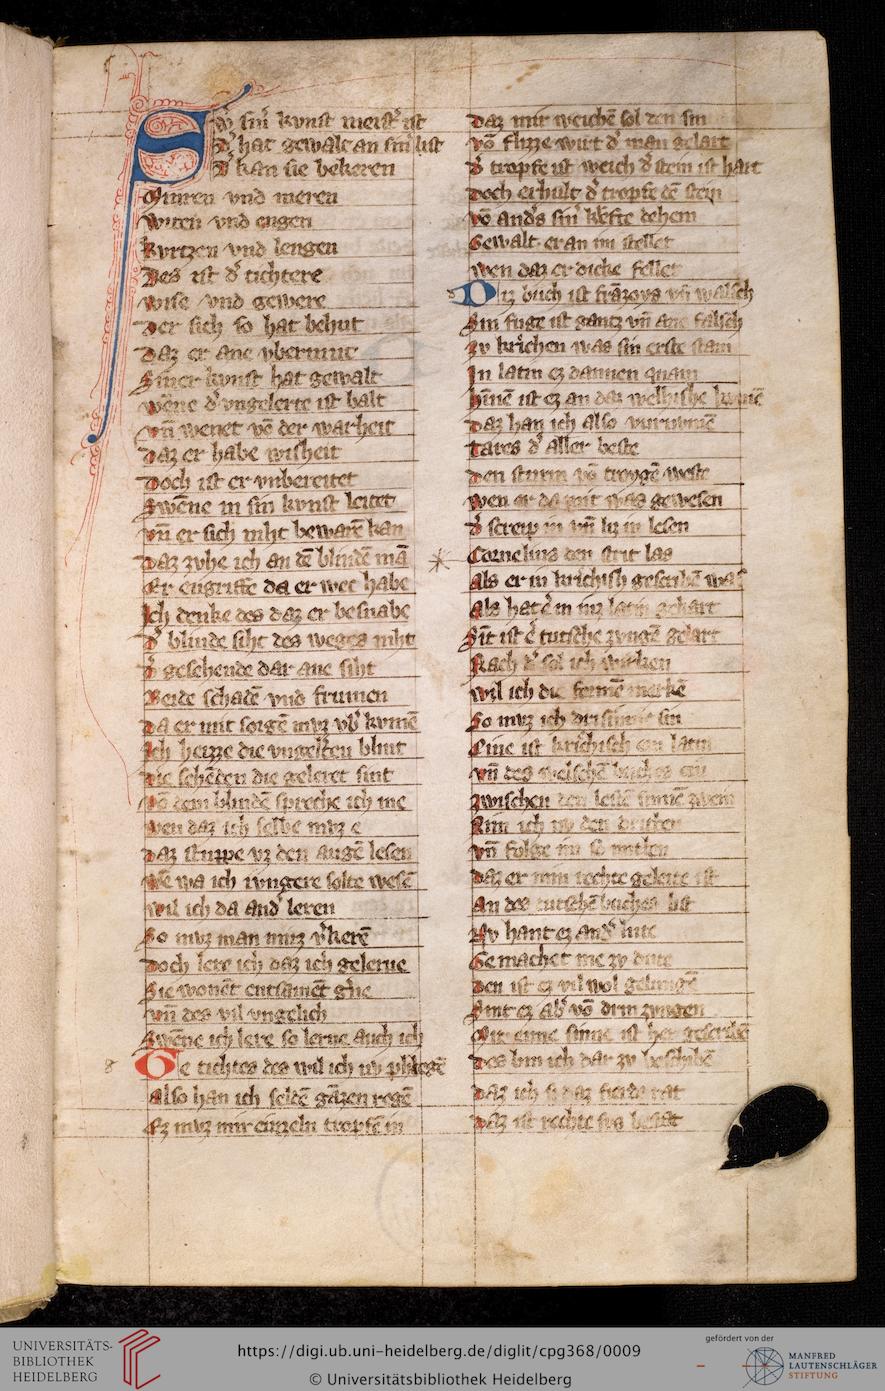 Swˢ sinˢ kvnst meistˢ ist
Dˢ hat gewalt an sinˢ list
Dˢ kan sie bekeren
Minren vnd meren
Witen vnd engen
kvrtzen vnd lengen
Des ist dˢ tichtere
wise vnd gewere
Der sich so hat behut
Daz er ane vbermut
Siner kvnst hat gewalt
wēne dˢ vngelerte ist balt
vn̄ wenet vō der warheit
Daz er habe wisheit
Doch ist er vnbereitet
Swēne in sin kvnst leitet
vn̄ er sich niht bewarē kan
Daz zvhe ich an dē blindē mā
Er engriffe da er wec habe
Ich denke des daz er besnabe
Dˢ blinde siht des weges niht
Dˢ gesehende dar ane siht
Beide schadē vnd frumen
Da er mit sorgē mvz vbˢ kvmē
Ich heizze die vngelˢten blint
Die sehēden die geleret sint
vō dem blindē spreche ich me
wen daz ich selbe mvz e
Daz stuppe vz den augē lesen
Wē wa ich iungere solte wesē
wil ich da andˢ leren
So mvz man mirz vˢkerē
Doch lere ich daz ich gelerne
Sie wonēt entsamēt gˢne
vn̄ des vil vngelich
Swēne ich lere so lerne auch ich
Ge tichtes des wil ich uv phlegē
Also han ich seldē gāzen regē
Ez mvz mir einzeln tropfē in
Daz mir weichē sol den sin
vō flizze wirt dˢ man gelart
Dˢ tropfe ist weich dˢ stein ist hart
Doch er hult dˢ tropfe dē stein
vō andˢs sinˢ krefte dehein
Gewalt er an im stellet
wen daz er dicke fellet
Diz buch ist frāzoys vn̄ walsch
Sin fuge ist gantz vn̄ ane falsch
Zv krichen was sin erste stam
In latin ez dannen quam
Hīnē ist ez an daz welhishe kvmē
Daz han ich also vurnvmē
Tares dˢ aller beste
Den sturm vō troygē weste
wen er da mit was gewesen
Dˢ screip in vn̄ liz in lesen
Cornelius den strit las
Als er in krichish gescribē was
Als hat ˢ in inz latin gekart
Sīt ist ˢ tutsche zvngē gelart
Nach dˢ sol ich wirken
wil ich die formē merkē
So mvz ich dri sinne sin
Eine ist krichisch ein latin
vn̄ des welschē buches ein
zwischen den lestē sinnē zwein
Nim ich uv den dritten
vn̄ folge im so mitten
Daz er min rechte geleite ist
An des tutschē buches list
Nv hant ez andˢ lute
Gemachet me zv dute
Den ist ez vil wol gelungē
Sint ez abˢ vō drin zvngen
Mit eime sinne ist her gescribē
Des bin ich dar zv beschibē
Daz ich si daz fierde rat
Daz ist rechte svs bestat
UNIVERSITÄTS-
BIBLIOTHEK
HEIDELBERG
https://digi.ub.uni-heidelberg.de/diglit/cpg368/0009
© Universitätsbibliothek Heidelberg
gefördert von der
MANFRED
LAUTENSCHLÄGER
STIFTUNG